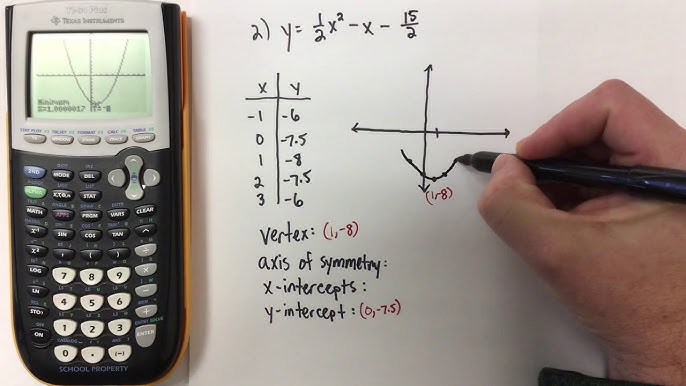 TI-84 Plus
TEXAS INSTRUMENTS
Minimum
X=1.0000017 Y=-8
STAT PLOT F1 TBLSET F2 FORMAT F3 CALC F4 TABLE F5
Y= WINDOW ZOOM TRACE GRAPH
2ND MODE DEL
ALPHA X,T,θ,n STAT
MATH APPS PRGM VARS CLEAR
x⁻¹ SIN COS TAN ^
x² , ( ) ÷
LOG 7 8 9 ×
LN 4 5 6 −
STO› 1 2 3 +
ON 0 . (-) ENTER
SCHOOL PROPERTY
2) y = 1/2 x² - x - 15/2
x y
-1 -6
0 -7.5
1 -8
2 -7.5
3 -6
(1,-8)
vertex: (1,-8)
axis of symmetry:
x-intercepts:
y-intercept: (0,-7.5)